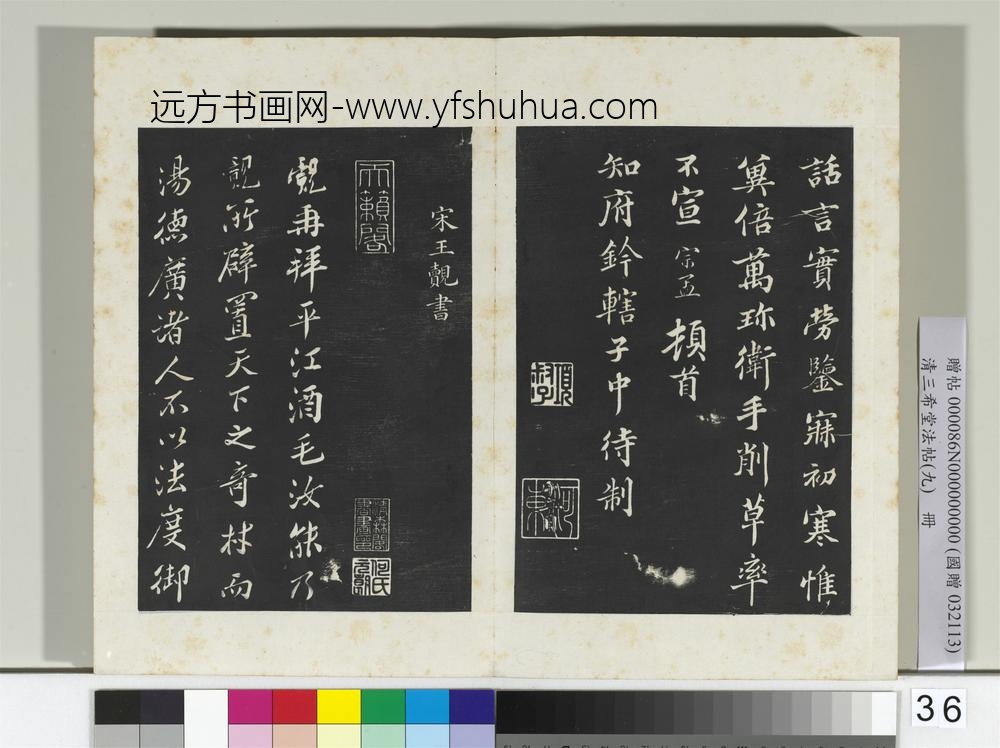 远方书画网-www.yfshuhua.com
話言實勞鑒寐初寒惟
兾倍萬珎衛手削草率
不宣宗孟頓首
知府鈐轄子中待制
項
河東
天籟閣
宋王覿書
覿再拜平江酒毛汝能乃
覿所辟置天下之奇材而
湯德廣諸人不以法度御
何氏元朗
贈帖 000086N000000000 (國贈 032113)
清三希堂法帖(九) 冊
36